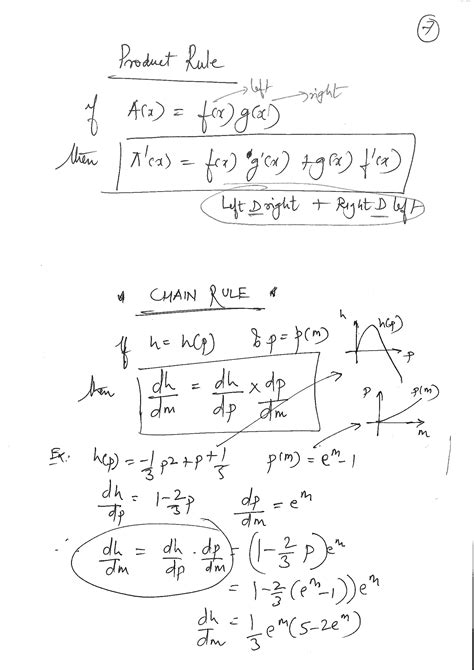 7
Product Rule
left right
if A(x) = f(x) g(x)
then A'(x) = f(x) g'(x) + g(x) f'(x)
Left D right + Right D left
* CHAIN RULE *
If h = h(p) & p = p(m)
then dh/dm = dh/dp × dp/dm
h h(p) p
p p(m) m
Ex: h(p) = -1/3 p² + p + 1/3 p(m) = e^m - 1
dh/dp = 1 - 2/3 p dp/dm = e^m
∴ dh/dm = dh/dp · dp/dm = (1 - 2/3 p) e^m
= 1 - 2/3 (e^m - 1)) e^m
dh/dm = 1/3 e^m (5 - 2e^m)